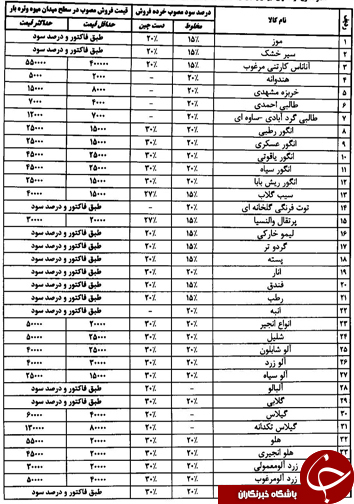 ردیف نام کالا درصد سود مصوب خرده فروش قیمت فروش مصوب در سطح میدان میوه وتره بار
مخلوط دست چین حداقل قیمت حداکثر قیمت
۱ موز ۱۵٪ ۲۰٪ طبق فاکتور و درصد سود
۲ سیر خشک ۱۵٪ ۲۰٪ طبق فاکتور و درصد سود
۳ آناناس کارتنی مرغوب ۱۵٪ ۲۰٪ ۴۰۰۰۰۰ ۵۵۰۰۰۰
۴ هندوانه ۲۰٪ - ۲۰۰۰ ۵۰۰۰
۵ خربزه مشهدی ۲۰٪ - ۸۰۰۰ ۱۵۰۰۰
۶ طالبی احمدی ۲۰٪ - ۴۰۰۰ ۷۰۰۰
۷ طالبی گرد آبادی -ساوه ای ۲۰٪ - ۷۰۰۰ ۱۲۰۰۰
۸ انگور رطبی ۲۰٪ ۳۰٪ ۱۵۰۰۰ ۲۵۰۰۰
۹ انگور عسکری ۲۰٪ ۳۰٪ ۱۵۰۰۰ ۲۵۰۰۰
۱۰ انگور یاقوتی ۲۰٪ ۳۰٪ ۲۵۰۰۰ ۴۵۰۰۰
۱۱ انگور سیاه ۲۰٪ ۳۰٪ ۲۵۰۰۰ ۴۵۰۰۰
۱۲ انگور ریش بابا ۲۰٪ ۳۰٪ ۱۵۰۰۰ ۲۵۰۰۰
۱۳ سیب گلاب ۱۵٪ ۲۷٪ ۱۵۰۰۰ ۴۰۰۰۰
۱۴ توت فرنگی گلخانه ای ۲۰٪ - طبق فاکتور و درصد سود
۱۵ پرتقال والنسیا ۱۵٪ ۲۷٪ ۲۰۰۰۰ ۳۰۰۰۰
۱۶ لیمو خارکی ۱۵٪ ۲۰٪ طبق فاکتور و درصد سود
۱۷ گردو تر ۱۵٪ ۲۰٪ طبق فاکتور و درصد سود
۱۸ پسته ۲۰٪ ۳۰٪ طبق فاکتور و درصد سود
۱۹ انار ۲۰٪ ۳۰٪ طبق فاکتور و درصد سود
۲۰ فندق ۱۵٪ ۲۰٪ طبق فاکتور و درصد سود
۲۱ رطب ۱۵٪ ۲۰٪ طبق فاکتور و درصد سود
۲۲ انبه ۲۰٪ - طبق فاکتور و درصد سود
۲۳ انواع انجیر ۲۰٪ ۳۰٪ ۲۰۰۰۰ ۵۰۰۰۰
۲۴ شلیل ۲۰٪ ۳۰٪ ۲۵۰۰۰ ۵۰۰۰۰
۲۵ آلو شابلون ۲۰٪ ۳۰٪ ۲۵۰۰۰ ۴۰۰۰۰
۲۶ آلو زرد ۲۰٪ ۳۰٪ ۳۰۰۰۰ ۴۰۰۰۰
۲۷ آلو سیاه ۲۰٪ ۳۰٪ ۱۵۰۰۰ ۲۵۰۰۰
۲۸ آلبالو - ۲۰٪ طبق فاکتور و درصد سود
۲۹ گلابی ۲۰٪ ۳۰٪ طبق فاکتور و درصد سود
۳۰ گیلاس - ۲۰٪ ۴۰۰۰۰ ۶۰۰۰۰
۳۱ گیلاس تکدانه - ۲۰٪ ۸۰۰۰۰ ۱۳۰۰۰۰
۳۲ هلو ۲۰٪ ۳۰٪ ۲۰۰۰۰ ۵۵۰۰۰
۳۳ هلو انجیری ۲۰٪ ۳۰٪ ۲۰۰۰۰ ۴۵۰۰۰
زرد آلومعمولی ۲۰٪ ۳۰٪ ۲۰۰۰۰ ۳۰۰۰۰
زرد آلومرغوب ۲۰٪ ۳۰٪ ۴۰۰۰۰ ۵۰۰۰۰
۲۰٪ ۳۰٪ طبق فاکتور و درصد سود
باشگاه خبرنگاران